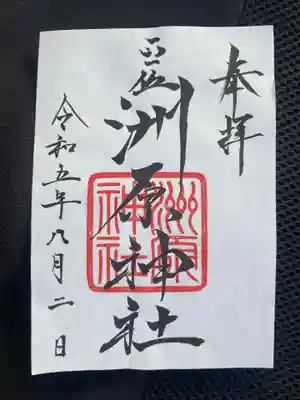 奉拝
洲原神社
洲原
神社
令和五年八月二日